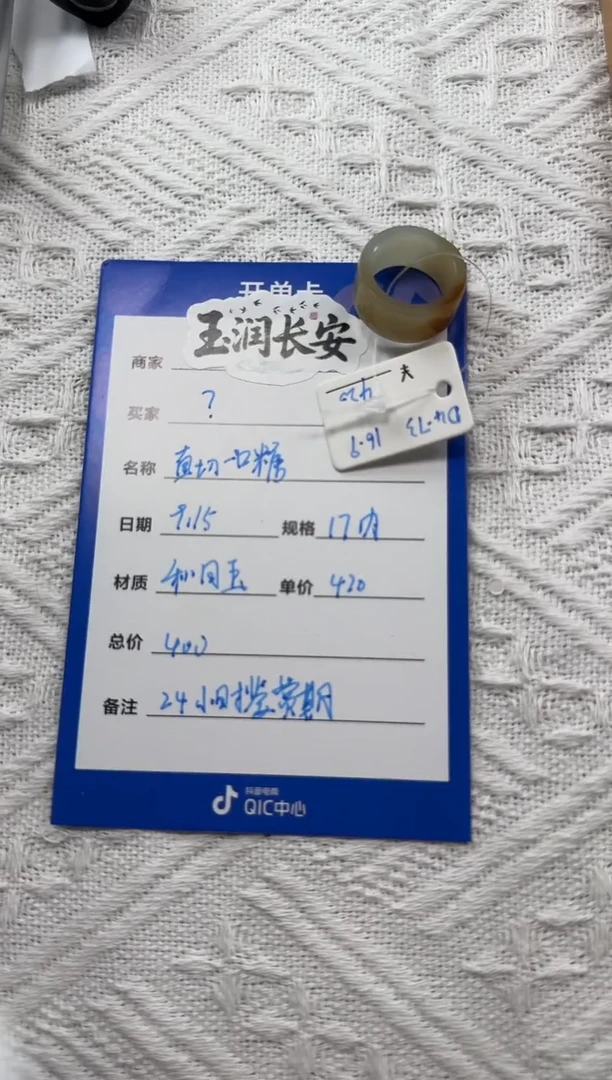 开单卡
玉润长安
商家
买家 ?
名称 直切一口糖
日期 9.15 规格 17内
材质 和田玉 单价 420
总价 400
备注 24小时鉴赏期
420
D4.73 16.9
抖音电商
QIC中心